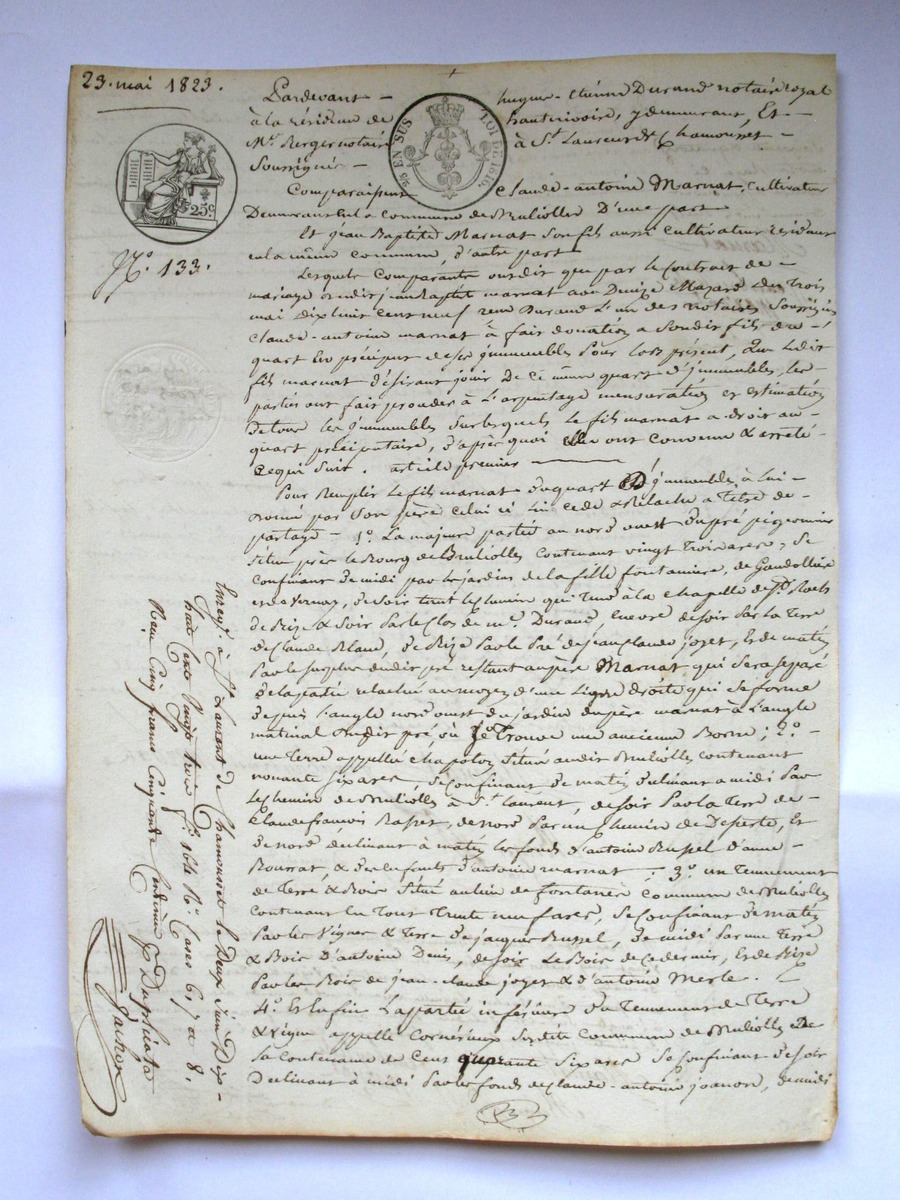 23. mai 1823.
Pardevant – hugues-étienne Durand notaire royal
à la résidence de hauterivoire, y demeurant, Et –
Mr. Berger notaire à St. Laurent de Chamousset –
Soussignés –
EN SUS LOI DE 1816
25 c.
N.° 133.
Comparaissent Claude-antoine Marnat, cultivateur
Demeurant en la commune de Brullioles D'une part
Et jean Baptiste Marnat Son fils aussi cultivateur résidant
en la même commune, d'autre part
Lesquels Comparants ont dit que par le Contrat de –
mariage dudit jean Baptiste marnat avec Denize Mazard du trois
mai dix huit cent neuf reçu Durand L'un des notaires Soussignés
Claude-antoine marnat a fait donation a Sondit fils du –
quart en préciput de ses immeubles pour lors présent, que ledit
fils marnat désirant jouir de ce même quart d'immeubles, les
parties ont fait procéder à L'arpentage mensuration et estimation
de tous les immeubles sur lesquels le fils marnat a droit au –
quart préciputaire, d'après quoi elles ont convenu & arreté
ce qui suit. article premier
Pour Remplir le fils marnat du quart D'immeubles à Lui
donné par Son père celui ci Lui cede & Relache a Titre de
partage – 1°. La majeure partie au nord ouest du pré
Situé près le bourg de Brullioles Contenant vingt trois ares, Se
Confinant de midi par le jardin de la fille fontaniere, de
et de Vernay, de soir tirant le chemin qui tend à la chapelle de St. Roch
de Bize & Soir par le Clos de mr. Durand, encore de soir par la Terre
de Claude Bland, de Bize par le Pré de jean Claude joyet, & de matin
par le surplus dudit pré restant au père Marnat qui sera separé
de la partie relachée au moyen d'une Ligne droite qui se forme
depuis L'angle nord ouest du jardin du père marnat à L'angle
matinal dudit pré où Se Trouve une ancienne Borne; 2°. –
une Terre appellée Chapoloz Située audit Brullioles Contenant
nonante six ares Se Confinant de matin declinant a midi par
Le chemin de Brullioles à St. Laurent, de soir par la Terre de –
Claude françois Rasset, de nord par un chemin de Deserte, Et
de nord déclinant à matin les fonds d'antoine Russel d'anne
& de les fonds d'antoine marnat. 3°. un Tennement
de Terre & Bois Situé au lieu de fontanes commune de Brullioles
Contenant en Tout Trente neuf ares, Se Confinant de matin
par les Vignes & Terre de jacques Russel, de midi par une Terre
& Bois D'antoine Denis, de soir le Bois de ce dernier, & de Bize
par les Bois de jean-claude joyet & d'antoine Merle.
4°. Et Enfin La partie inférieure du Tennement de Terre
& vigne appellé Cornérieux Susdite Commune de Brullioles De
la Contenance de Cent quarante six ares Se Confinant de soir
Declinant à midi par les fonds de Claude-antoine joanon, de midi
Enreg. à St. Laurent de Chamousset le Deux juin Dix –
huit cent Vingt trois f° 164 R.° Cases 6, 7 et 8.
Reçu Cinq francs Cinquante Centimes